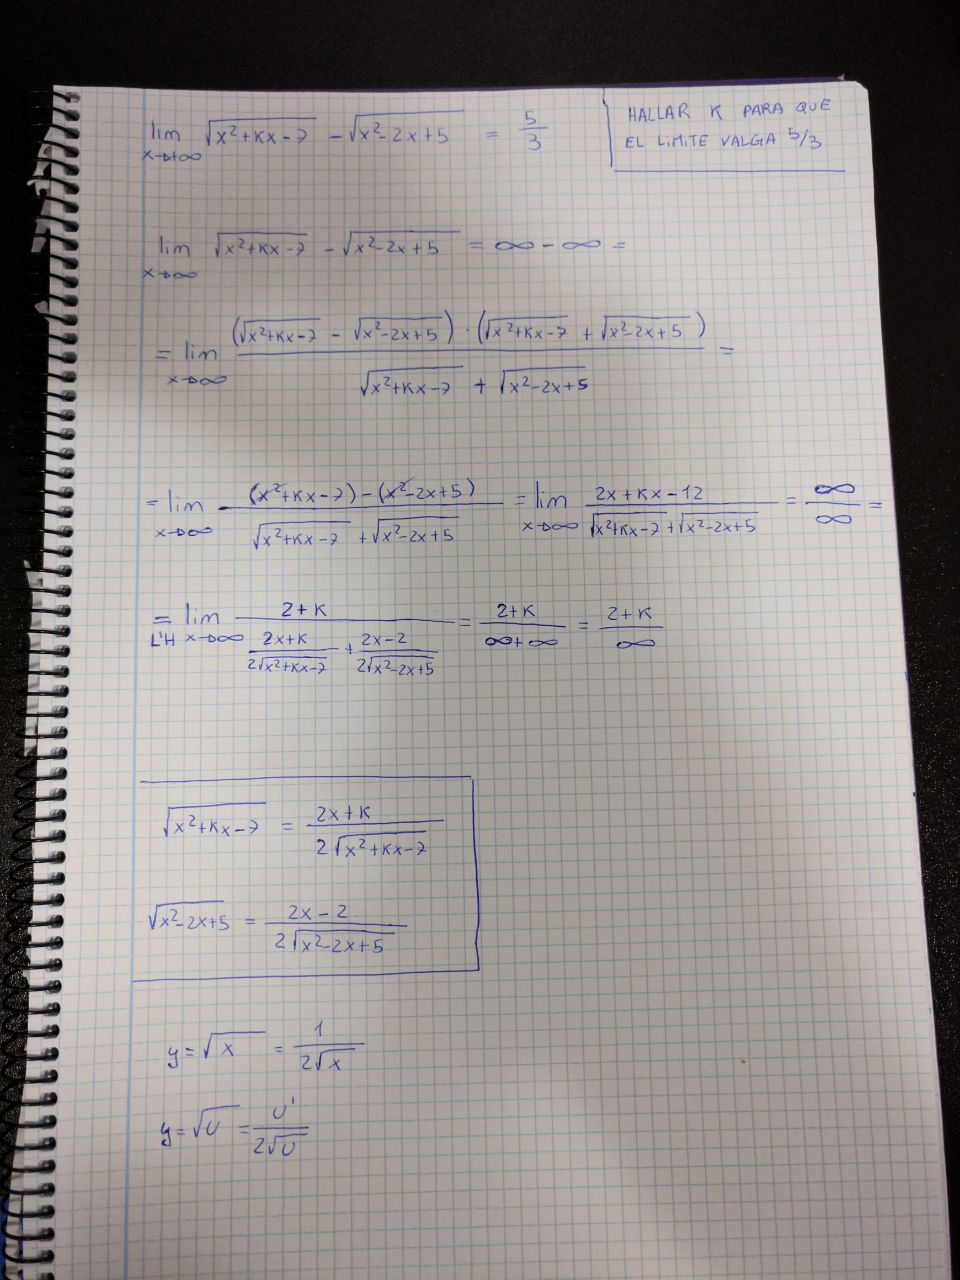 lim x→+∞ √(x²+Kx-7) - √(x²-2x+5) = 5/3
HALLAR K PARA QUE
EL LIMITE VALGA 5/3
lim x→∞ √(x²+Kx-7) - √(x²-2x+5) = ∞ - ∞ =
= lim x→∞ (√(x²+Kx-7) - √(x²-2x+5)) · (√(x²+Kx-7) + √(x²-2x+5)) / (√(x²+Kx-7) + √(x²-2x+5)) =
= lim x→∞ ((x²+Kx-7) - (x²-2x+5)) / (√(x²+Kx-7) + √(x²-2x+5)) = lim x→∞ (2x+Kx-12) / (√(x²+Kx-7) + √(x²-2x+5)) = ∞/∞ =
= L'H lim x→∞ (2+K) / ((2x+K)/(2√(x²+Kx-7)) + (2x-2)/(2√(x²-2x+5))) = (2+K)/(∞+∞) = (2+K)/∞
√(x²+Kx-7) = (2x+K)/(2√(x²+Kx-7))
√(x²-2x+5) = (2x-2)/(2√(x²-2x+5))
y=√x = 1/(2√x)
y=√U = U'/(2√U)